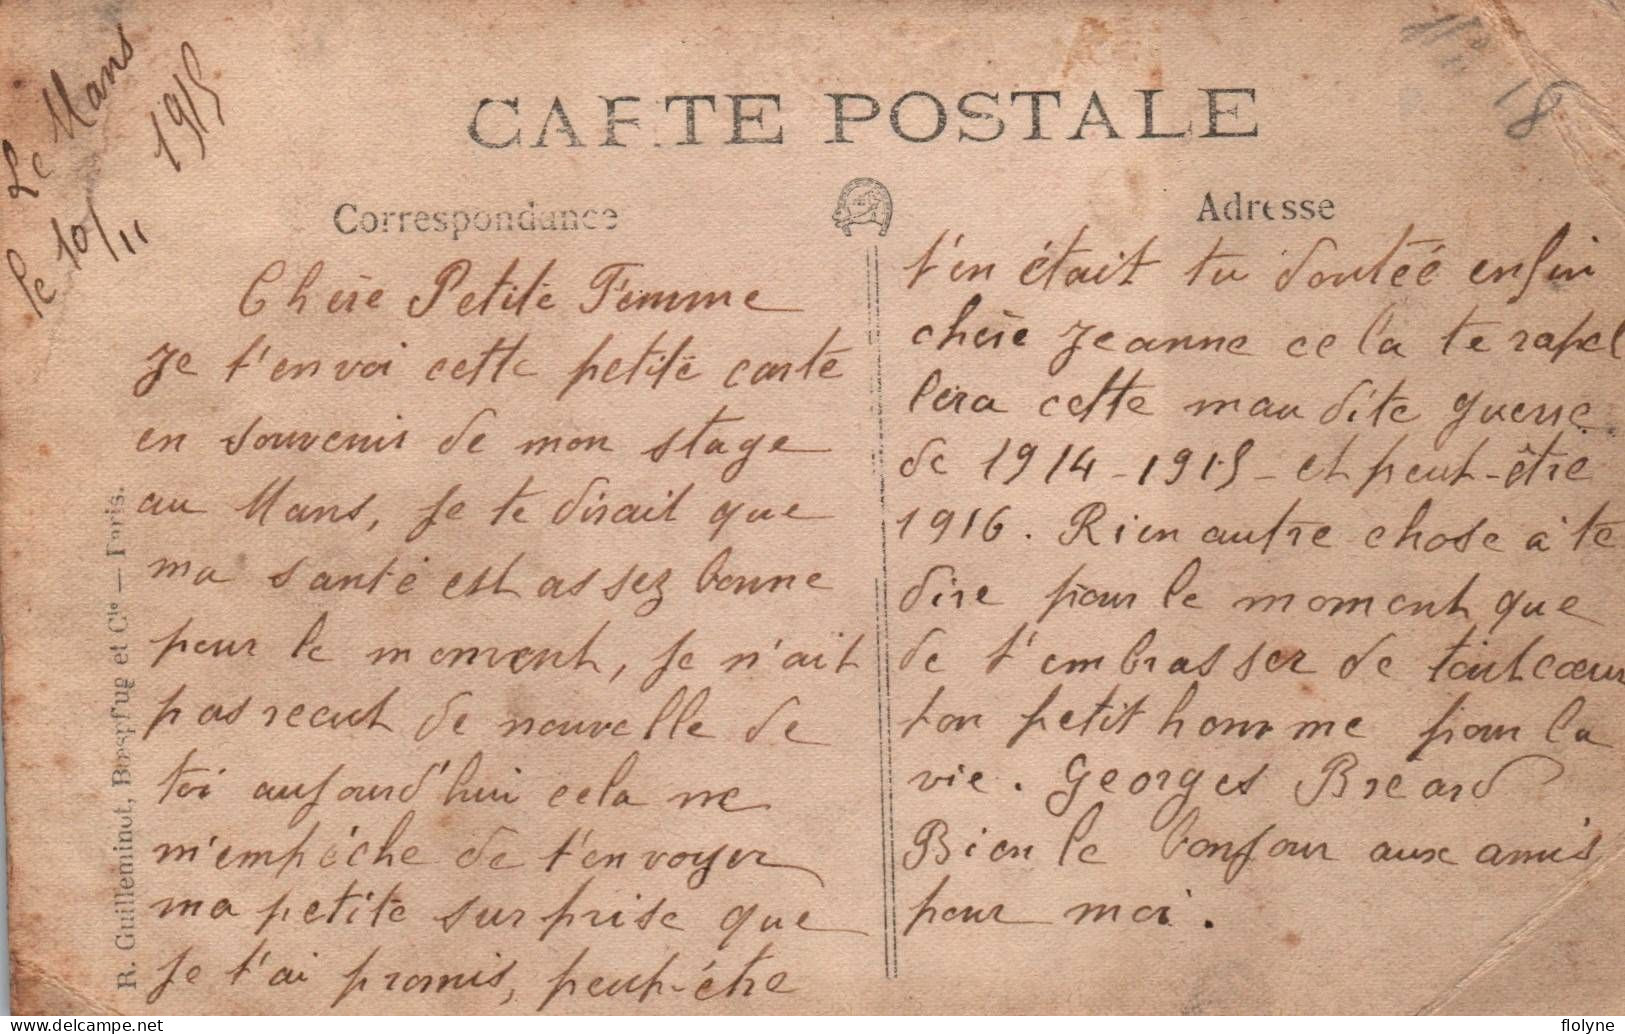 Le Mans
le 10/11 1915
CARTE POSTALE
Correspondance
Adresse
18
Chère Petite Femme
Je t'envoi cette petite carte
en souvenir de mon stage
au Mans, Je te dirait que
ma santé est assez bonne
pour le moment, Je n'ait
pas recut de nouvelle de
toi aujourd'hui cela ne
m'empéche de t'envoyer
ma petite surprise que
Je t'ai promis, peut-étre
t'en était tu doutéé enfin
chère Jeanne cela te rapel
lera cette maudite guerre
de 1914-1915- et peut-être
1916. Rien autre chose à te
dire pour le moment que
de t'embrasser de tout coeur
ton petit homme pour la
vie. Georges Breard
Bien le bonjour aux amis
pour moi.
R. Guilleminot, Bœspflug et Cie — Paris.
flolyne